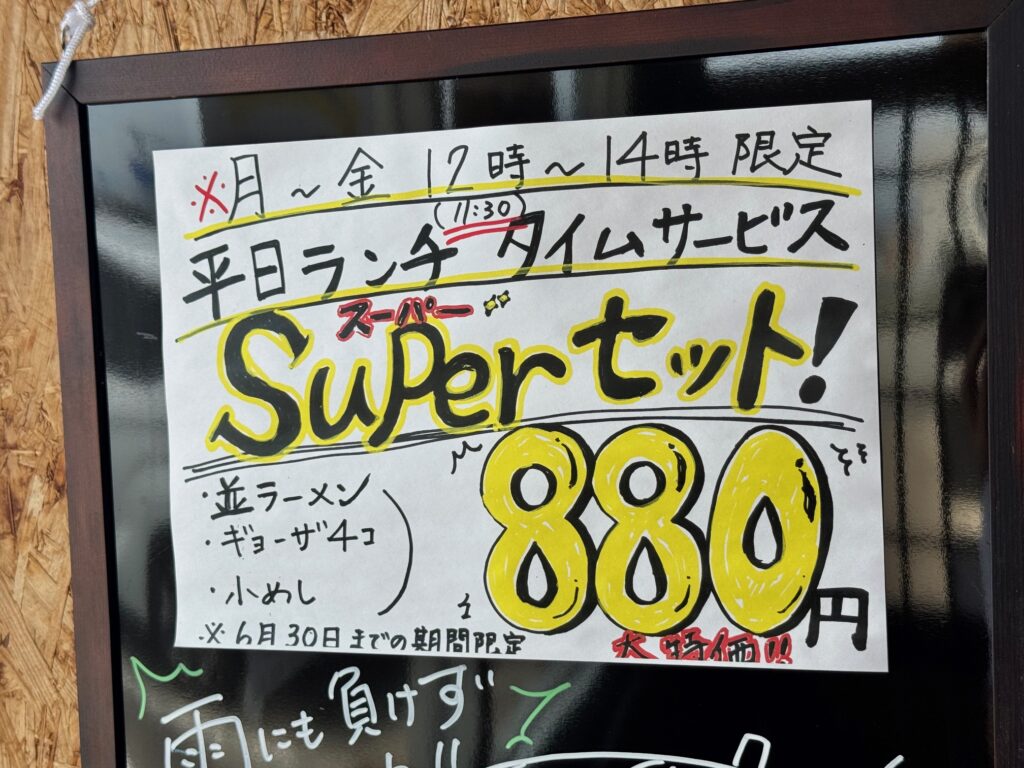 ※月～金 12時～14時 限定
(11:30)
平日ランチ タイムサービス
スーパー
Superセット!
・並ラーメン
・ギョーザ4コ
・小めし
880円
※6月30日までの期間限定
大特価!!
雨にも負けず